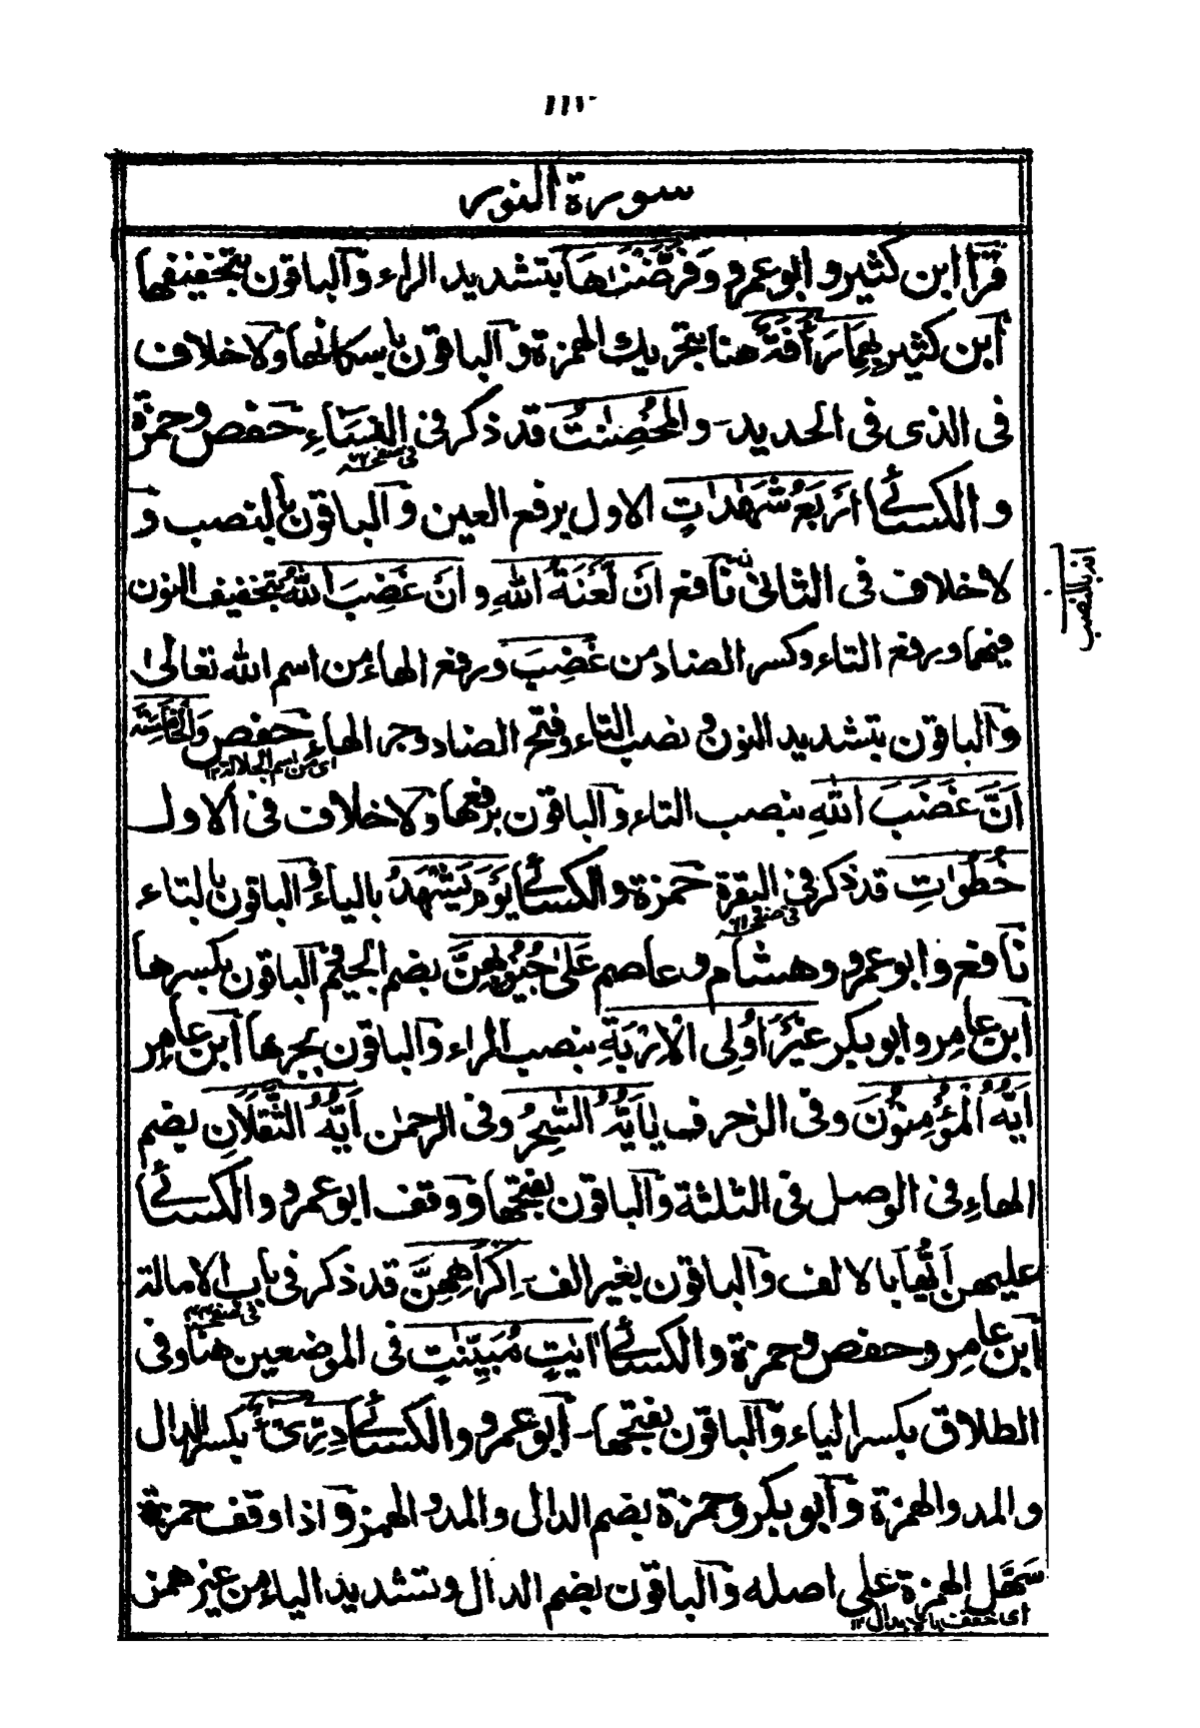 سورة النور
قرأ ابن كثير و ابو عمرو وَفَرَّضْنٰهَا بتشديد الراء و الباقون بتخفيفها
ابن كثير بِهِمَا رَأَفَةٌ هنا بتحريك الهمزة و الباقون باسكانها ولا خلاف
فى الذى فى الحديد - و المُحْصَنٰتُ قد ذكر فى النِّسَاءِ حفص و حمزة
و الكسائى اَرْبَعُ شَهٰدٰتٍ الاول برفع العين و الباقون بالنصب و
لا خلاف فى الثانى نافع اَنْ لَّعْنَةُ اللّٰهِ و اَنْ غَضِبَ اللّٰهُ بتخفيف النون
اى بالنصب
فيهما و رفع التاء و كسر الضاد من غَضِبَ و رفع الهاء من اسم الله تعالىٰ
و الباقون بتشديد النون و نصب التاء و فتح الضاد و جر الهاء حفص وَالْخَامِسَةَ
اى من اسم الجلالة ١٢
اَنَّ غَضَبَ اللّٰهِ بنصب التاء و الباقون برفعها و لا خلاف فى الاول
خُطُوٰاتِ قد ذكر فى البقرة حمزة و الكسائى يَوْمَ يَشْهَدُ بالياء و الباقون بالتاء
نافع و ابو عمرو و هشام و عاصم عَلىٰ جُيُوْبِهِنَّ بضم الجيم و الباقون بكسرها
ابن عامر و ابو بكر غَيْرَ اُولِى الْاِرْبَةِ بنصب الراء و الباقون بجرها ابن عامر
اَيُّهُ الْمُؤْمِنُوْنَ و فى الزخرف يٰاَيُّهُ السّٰحِرُ و فى الرحمٰن اَيُّهُ الثَّقَلَانِ بضم
الهاء فى الوصل فى الثلثة و الباقون بفتحها و وقف ابو عمرو و الكسائى
عليهن اَيُّهَا بالالف و الباقون بغير الف - اِكْرَاهِهِنَّ قد ذكر فى باب الامالة
ابن عامر و حفص و حمزة و الكسائى اٰيٰتٍ مُّبَيِّنٰتٍ فى الموضعين هنا و فى
الطلاق بكسر الياء و الباقون بفتحها - ابو عمرو و الكسائى دِرِّىْءٌ بكسر الدال
و المد و الهمزة و ابو بكر و حمزة بضم الدال و المد و الهمز و اذا وقف حمزة
سَهَّل الهمزة على اصله و الباقون بضم الدال و تشديد الياء من غير همز
اى خفف بالابدال ١٢